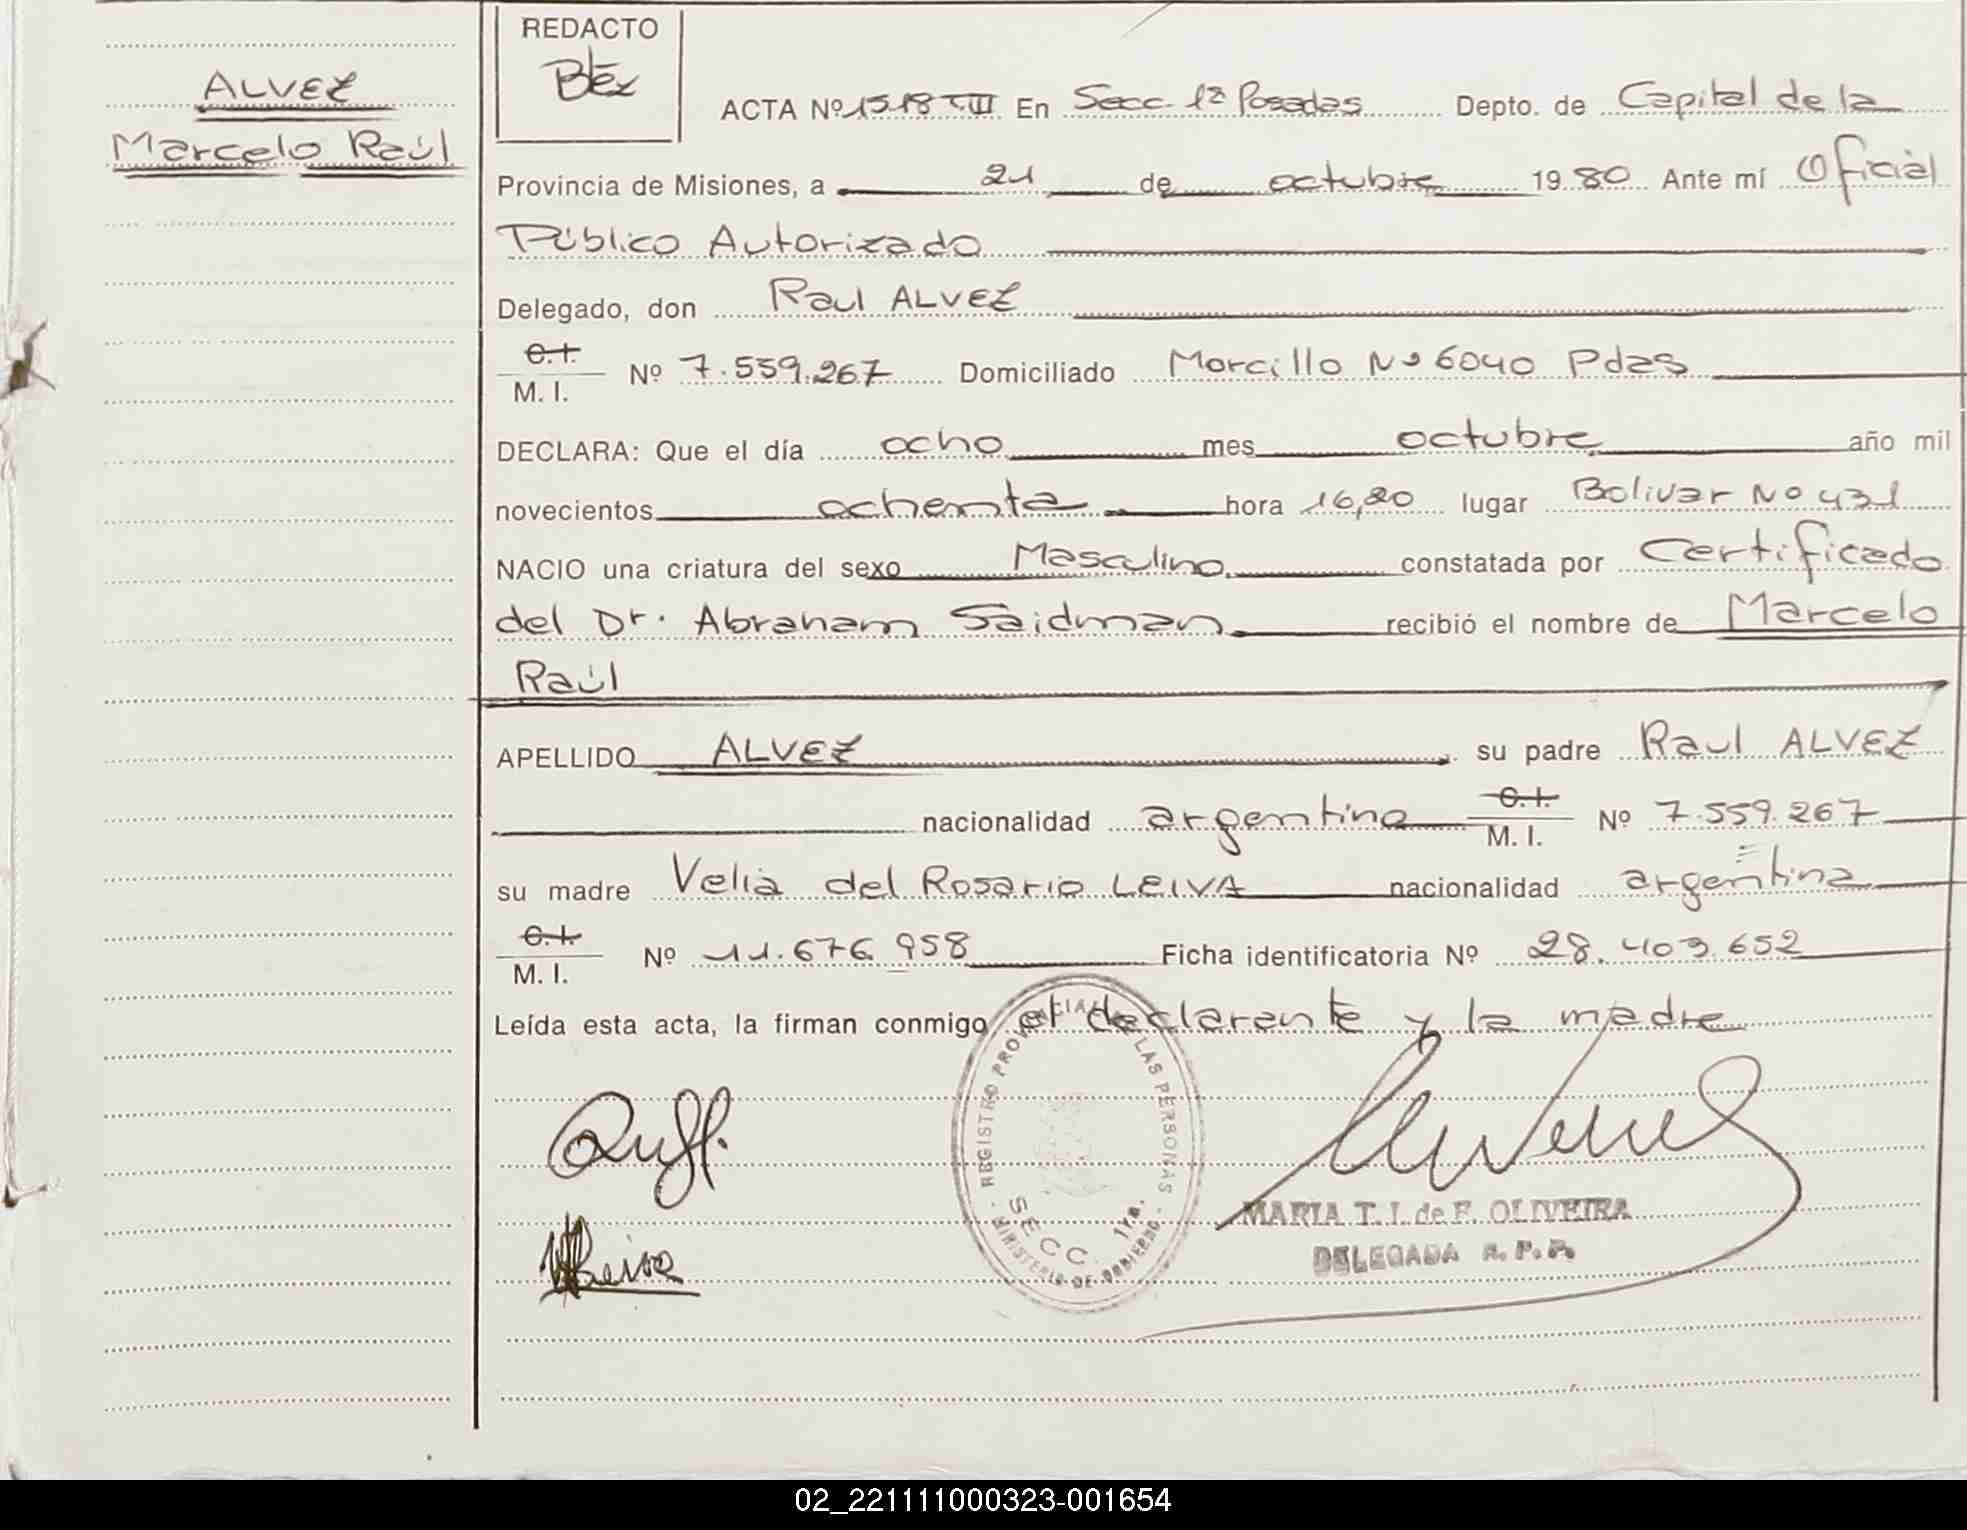 REDACTO
Béz
ALVEZ
Marcelo Raúl
ACTA Nº 1518 T. III En Secc. 1ª Posadas Depto. de Capital de la
Provincia de Misiones, a 21 de octubre 1980 Ante mí Oficial
Público Autorizado
Delegado, don Raul ALVEZ
C.I.
M. I. Nº 7.559.267 Domiciliado Morcillo Nº 6040 Pdas
DECLARA: Que el día ocho mes octubre año mil
novecientos ochenta hora 16,20 lugar Bolivar Nº 431
NACIO una criatura del sexo Masculino constatada por Certificado
del Dr. Abraham Saidman recibió el nombre de Marcelo
Raúl
APELLIDO ALVEZ su padre Raul ALVEZ
nacionalidad argentina C.I.
M. I. Nº 7.559.267
su madre Velia del Rosario LEIVA nacionalidad argentina
C.I.
M. I. Nº 11.676.958 Ficha identificatoria Nº 28.403.652
Leída esta acta, la firman conmigo el declarante y la madre
REGISTRO PROVINCIAL LAS PERSONAS
SECC. 1ra.
MINISTERIO DE GOBIERNO
MARIA T. I. de F. OLIVEIRA
DELEGADA R. P. P.
02_221111000323-001654